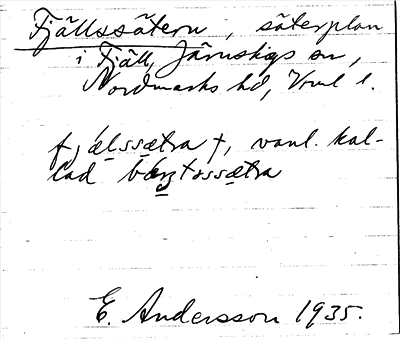 Fjällssätern, säterplan
i Fjäll, Järnskogs sn,
Nordmarks hd, Vrml l.
fjælssætra †, vanl. kal-
lad
E. Andersson 1935.